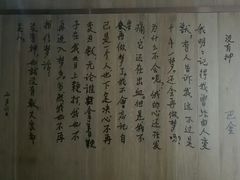 没有神
巴金
我明明记得我曾经由人变
兽，有人告诉我这不过是
十年一梦。还会再做梦吗？
为什么不会呢？我的心还在发
痛，它还在出血。但是我不
要再做梦了。我不会忘记自
己是一个人，也下定决心不再
变为兽，无论谁拿着鞭
子在我背上鞭打，我也不再
进入梦乡。当然我也不再
相信梦话！
没有神，也就没有兽。大家都
是人。